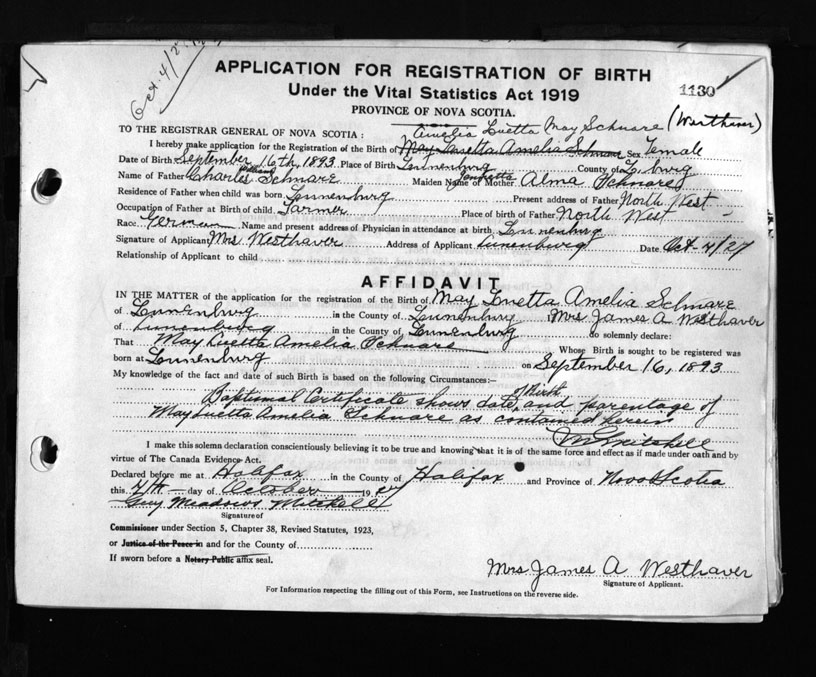 Oct. 4/27
APPLICATION FOR REGISTRATION OF BIRTH
Under the Vital Statistics Act 1919
1130
PROVINCE OF NOVA SCOTIA.
Amelia Luetta May Schnare (Westhaver)
TO THE REGISTRAR GENERAL OF NOVA SCOTIA:
I hereby make application for the Registration of the Birth of May Luetta Amelia Schnare Sex Female
Date of Birth September 16th, 1893 Place of Birth Lunenburg County of L.burg
Name of Father Charles William Schnare Maiden Name of Mother Alma Henrietta Schnare
Residence of Father when child was born Lunenburg Present address of Father North West
Occupation of Father at Birth of child Farmer Place of birth of Father North West
Race German Name and present address of Physician in attendance at birth Lunenburg
Signature of Applicant Mrs Westhaver Address of Applicant Lunenburg Date Oct-4/27
Relationship of Applicant to child
AFFIDAVIT
IN THE MATTER of the application for the registration of the Birth of May Luetta Amelia Schnare
of Lunenburg in the County of Lunenburg Mrs James A Westhaver
of Lunenburg in the County of Lunenburg do solemnly declare:
That May Luetta Amelia Schnare Whose Birth is sought to be registered was
born at Lunenburg on September 16, 1893
My knowledge of the fact and date of such Birth is based on the following Circumstances:—
Baptismal Certificate shows date of Birth and parentage of
May Luetta Amelia Schnare as contained herein
Mitchell
I make this solemn declaration conscientiously believing it to be true and knowing that it is of the same force and effect as if made under oath and by
virtue of The Canada Evidence Act.
Declared before me at Halifax in the County of Halifax and Province of Nova Scotia
this 4th day of October 1927
Guy Mitchell
Signature of
Commissioner under Section 5, Chapter 38, Revised Statutes, 1923,
or Justice of the Peace in and for the County of
If sworn before a Notary Public affix seal.
Mrs James A Westhaver
Signature of Applicant.
For Information respecting the filling out of this Form, see Instructions on the reverse side.